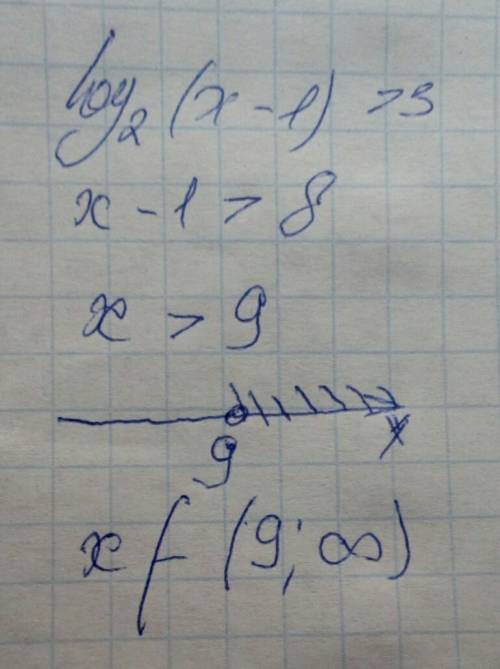 log₂(x-1) >3
x-1 > 8
x > 9
9 x
x ∈ (9; ∞)